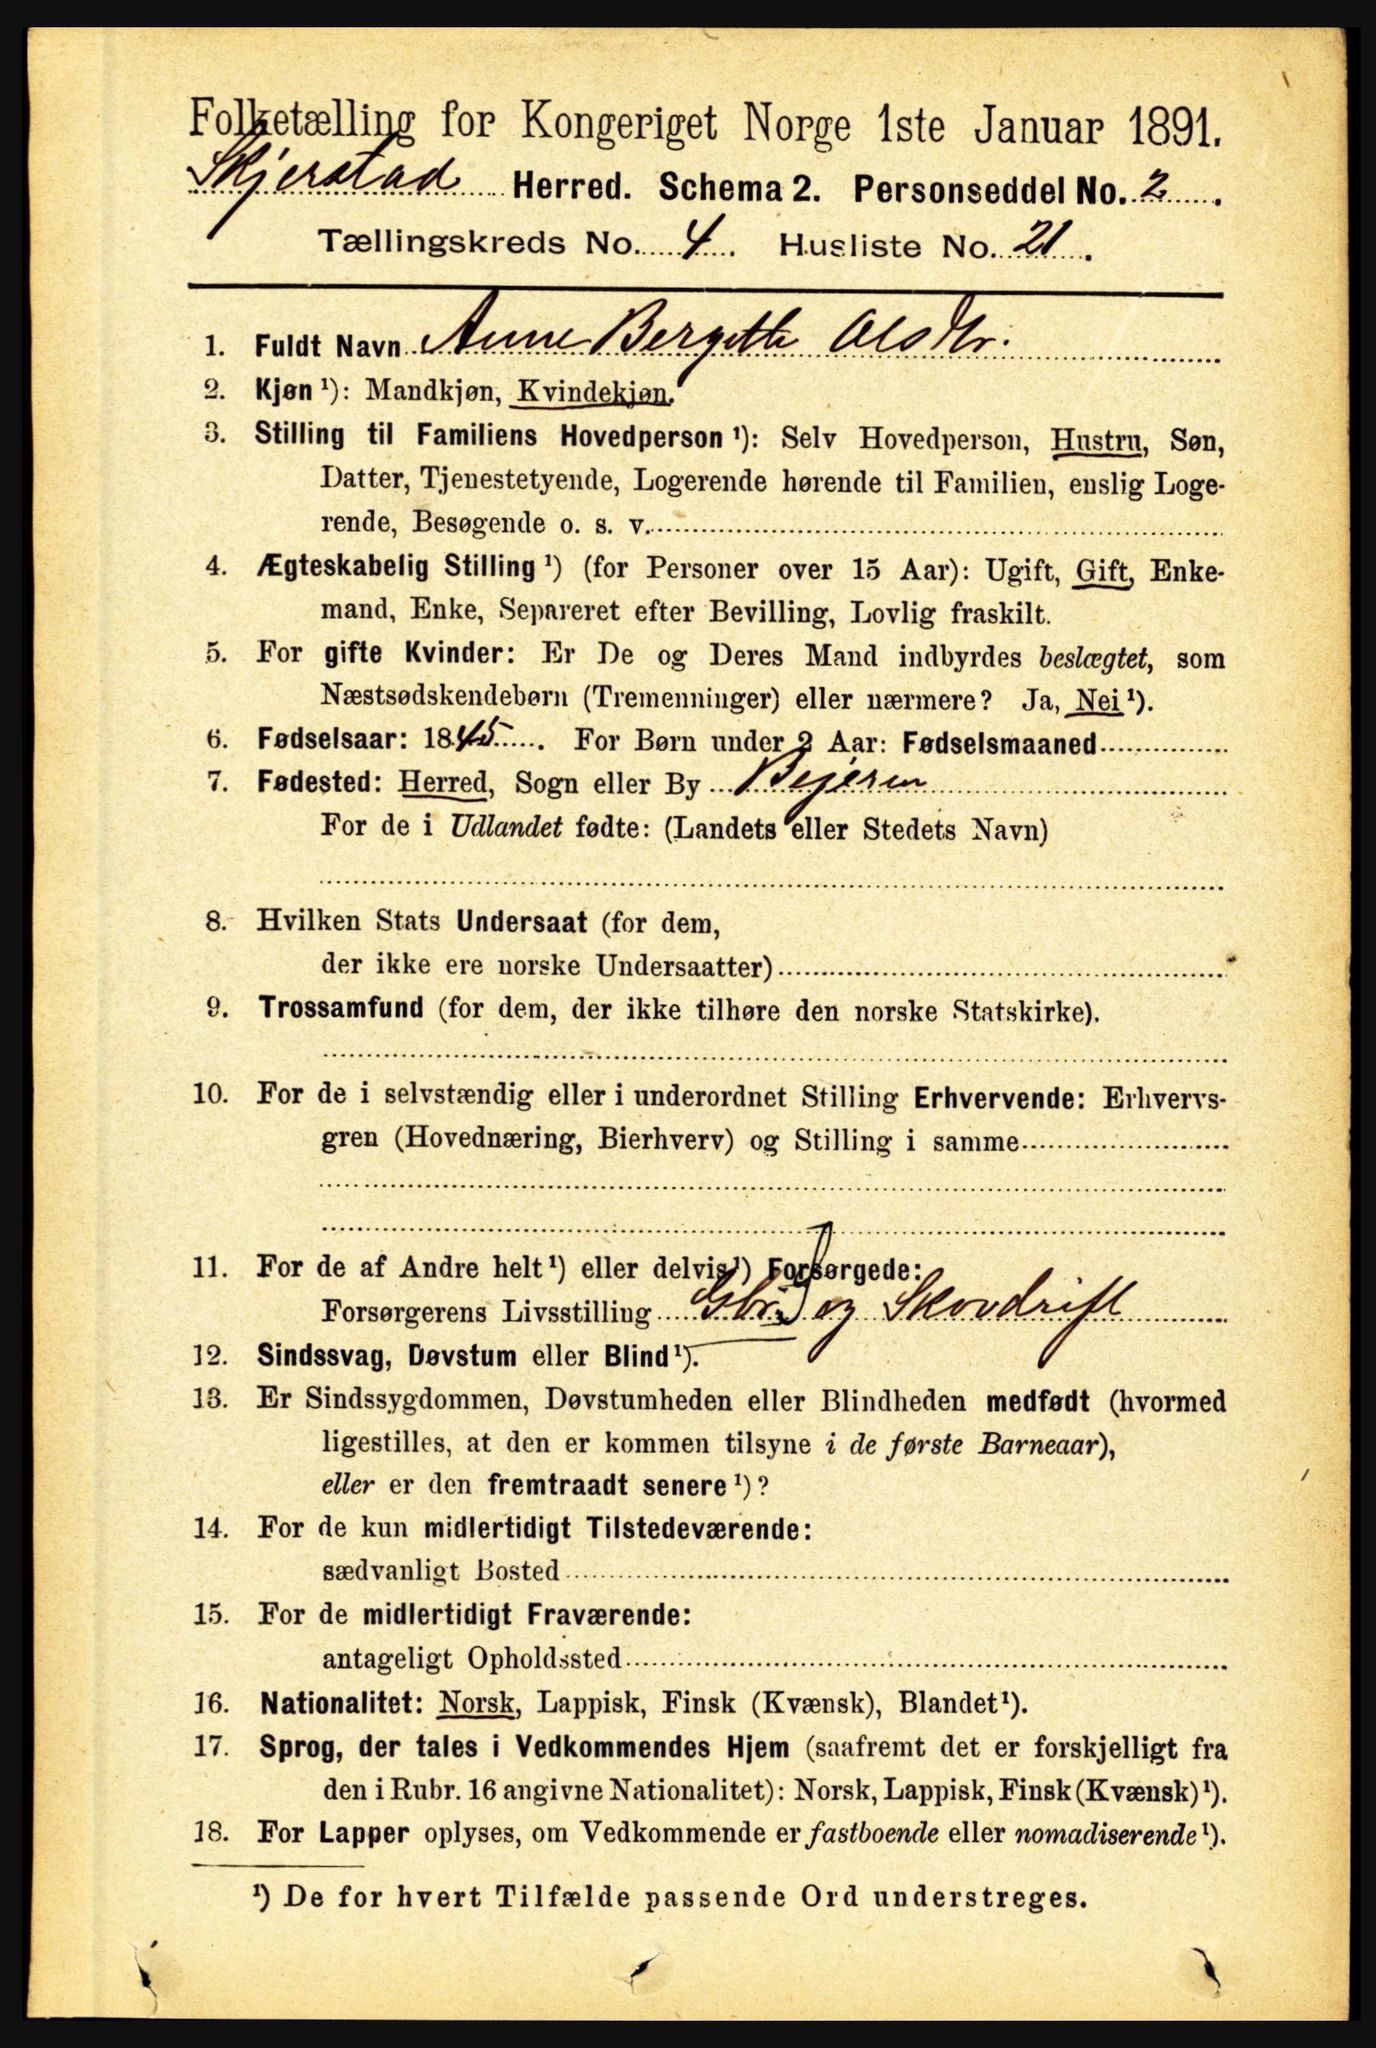 Folketælling for Kongeriget Norge 1ste Januar 1891.
Skjerstad Herred. Schema 2. Personseddel No. 2.
Tællingskreds No. 4. Husliste No. 21.
1. Fuldt Navn Anne Bergitte Olsdtr.
2. Kjøn ¹): Mandkjøn, Kvindekjøn.
3. Stilling til Familiens Hovedperson ¹): Selv Hovedperson, Hustru, Søn,
Datter, Tjenestetyende, Logerende hørende til Familien, enslig Loge-
rende, Besøgende o. s. v.
4. Ægteskabelig Stilling ¹) (for Personer over 15 Aar): Ugift, Gift, Enke-
mand, Enke, Separeret efter Bevilling, Lovlig fraskilt.
5. For gifte Kvinder: Er De og Deres Mand indbyrdes beslægtet, som
Næstsødskendebørn (Tremenninger) eller nærmere? Ja, Nei ¹).
6. Fødselsaar: 1845. For Børn under 2 Aar: Fødselsmaaned
7. Fødested: Herred, Sogn eller By Bejeren
For de i Udlandet fødte: (Landets eller Stedets Navn)
8. Hvilken Stats Undersaat (for dem,
der ikke ere norske Undersaatter)
9. Trossamfund (for dem, der ikke tilhøre den norske Statskirke).
10. For de i selvstændig eller i underordnet Stilling Erhvervende: Erhvervs-
gren (Hovednæring, Bierhverv) og Stilling i samme
11. For de af Andre helt ¹) eller delvis ¹) Forsørgede:
Forsørgerens Livsstilling Gbr. og Skovdrift
12. Sindssvag, Døvstum eller Blind ¹).
13. Er Sindssygdommen, Døvstumheden eller Blindheden medfødt (hvormed
ligestilles, at den er kommen tilsyne i de første Barneaar),
eller er den fremtraadt senere ¹)?
14. For de kun midlertidigt Tilstedeværende:
sædvanligt Bosted
15. For de midlertidigt Fraværende:
antageligt Opholdssted
16. Nationalitet: Norsk, Lappisk, Finsk (Kvænsk), Blandet ¹).
17. Sprog, der tales i Vedkommendes Hjem (saafremt det er forskjelligt fra
den i Rubr. 16 angivne Nationalitet): Norsk, Lappisk, Finsk (Kvænsk) ¹).
18. For Lapper oplyses, om Vedkommende er fastboende eller nomadiserende ¹).
¹) De for hvert Tilfælde passende Ord understreges.